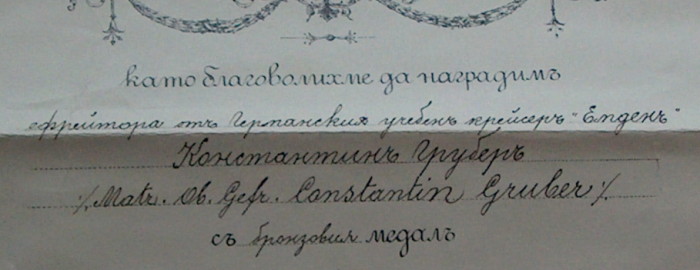 като благоволихме да наградимъ
ефрейтора отъ Германския учебенъ крейсеръ "Емденъ"
Константинъ Груберъ
·/. Matr. Ob. Gefr. Constantin Gruber ·/.
съ бронзовия медалъ